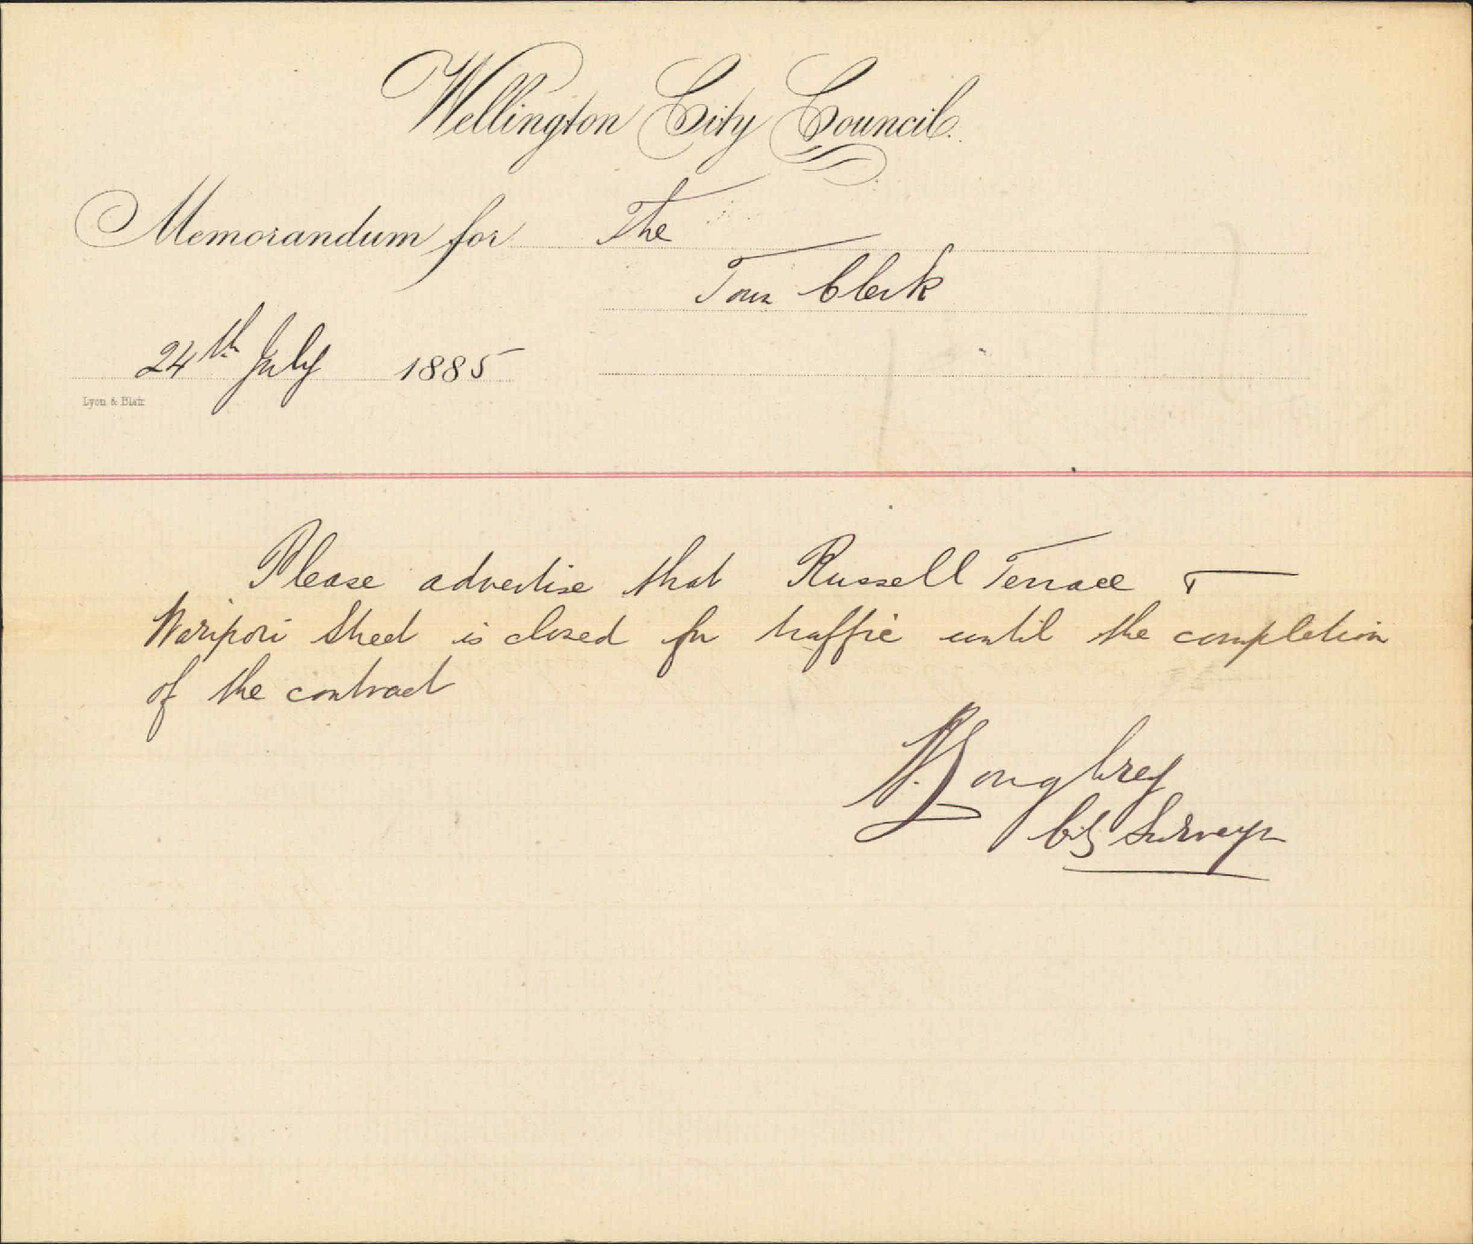 Wellington City Council.
Memorandum for The
Town Clerk
24th July 1885
Lyon & Blair
Please advertise that Russell Terrace &
Waripori Street is closed for traffic until the completion
of the contract
Loughrey
City Surveyor